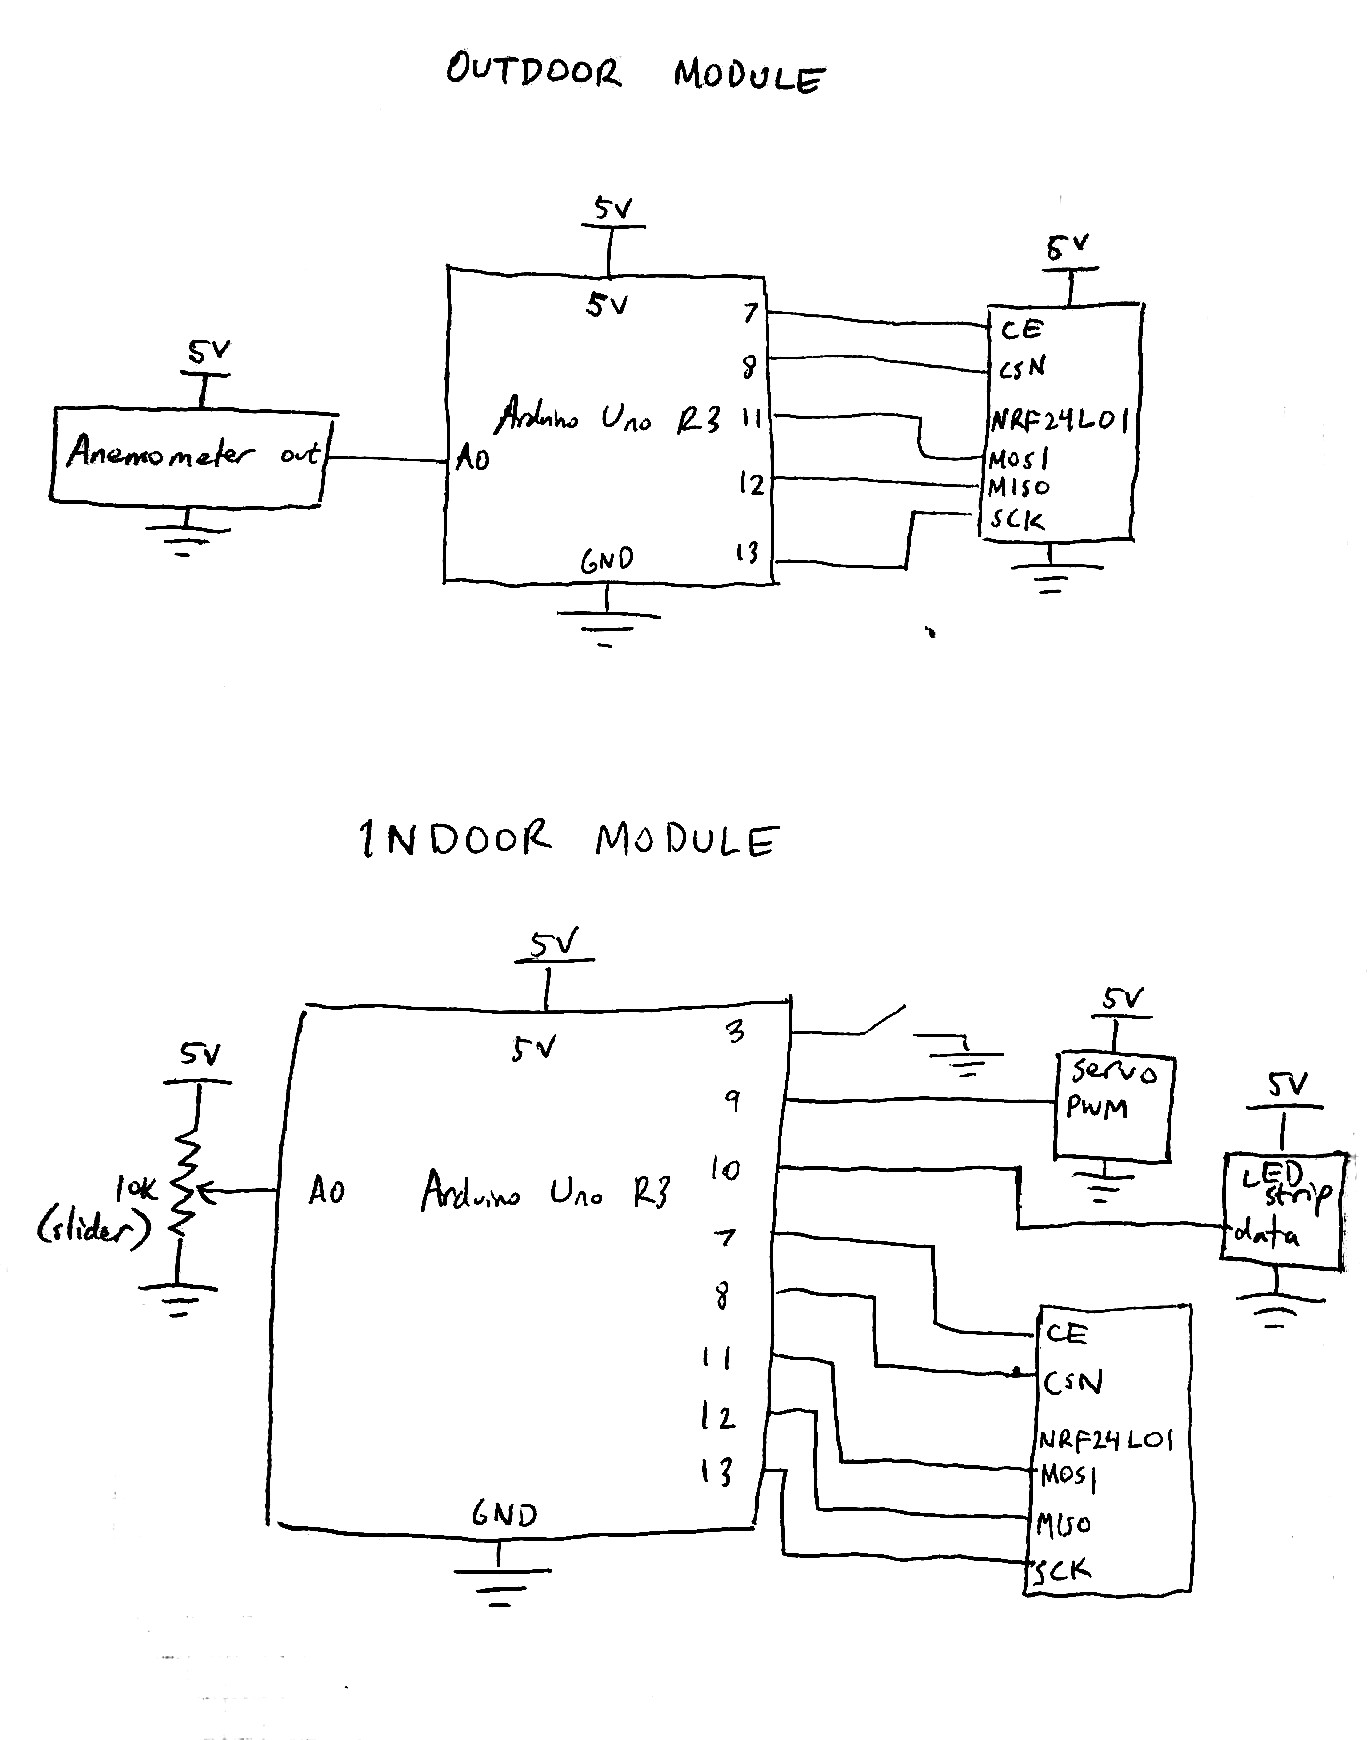 OUTDOOR MODULE
5V
5V
5V
7
CE
8
CSN
5V
Arduino Uno R3
11
NRF24L01
Anemometer out
A0
MOSI
12
MISO
SCK
GND
13
INDOOR MODULE
5V
5V
3
5V
5V
servo
9
PWM
5V
10
LED
strip
10K
(slider)
A0
Arduino Uno R3
data
7
8
CE
11
CSN
12
NRF24L01
13
MOSI
GND
MISO
SCK